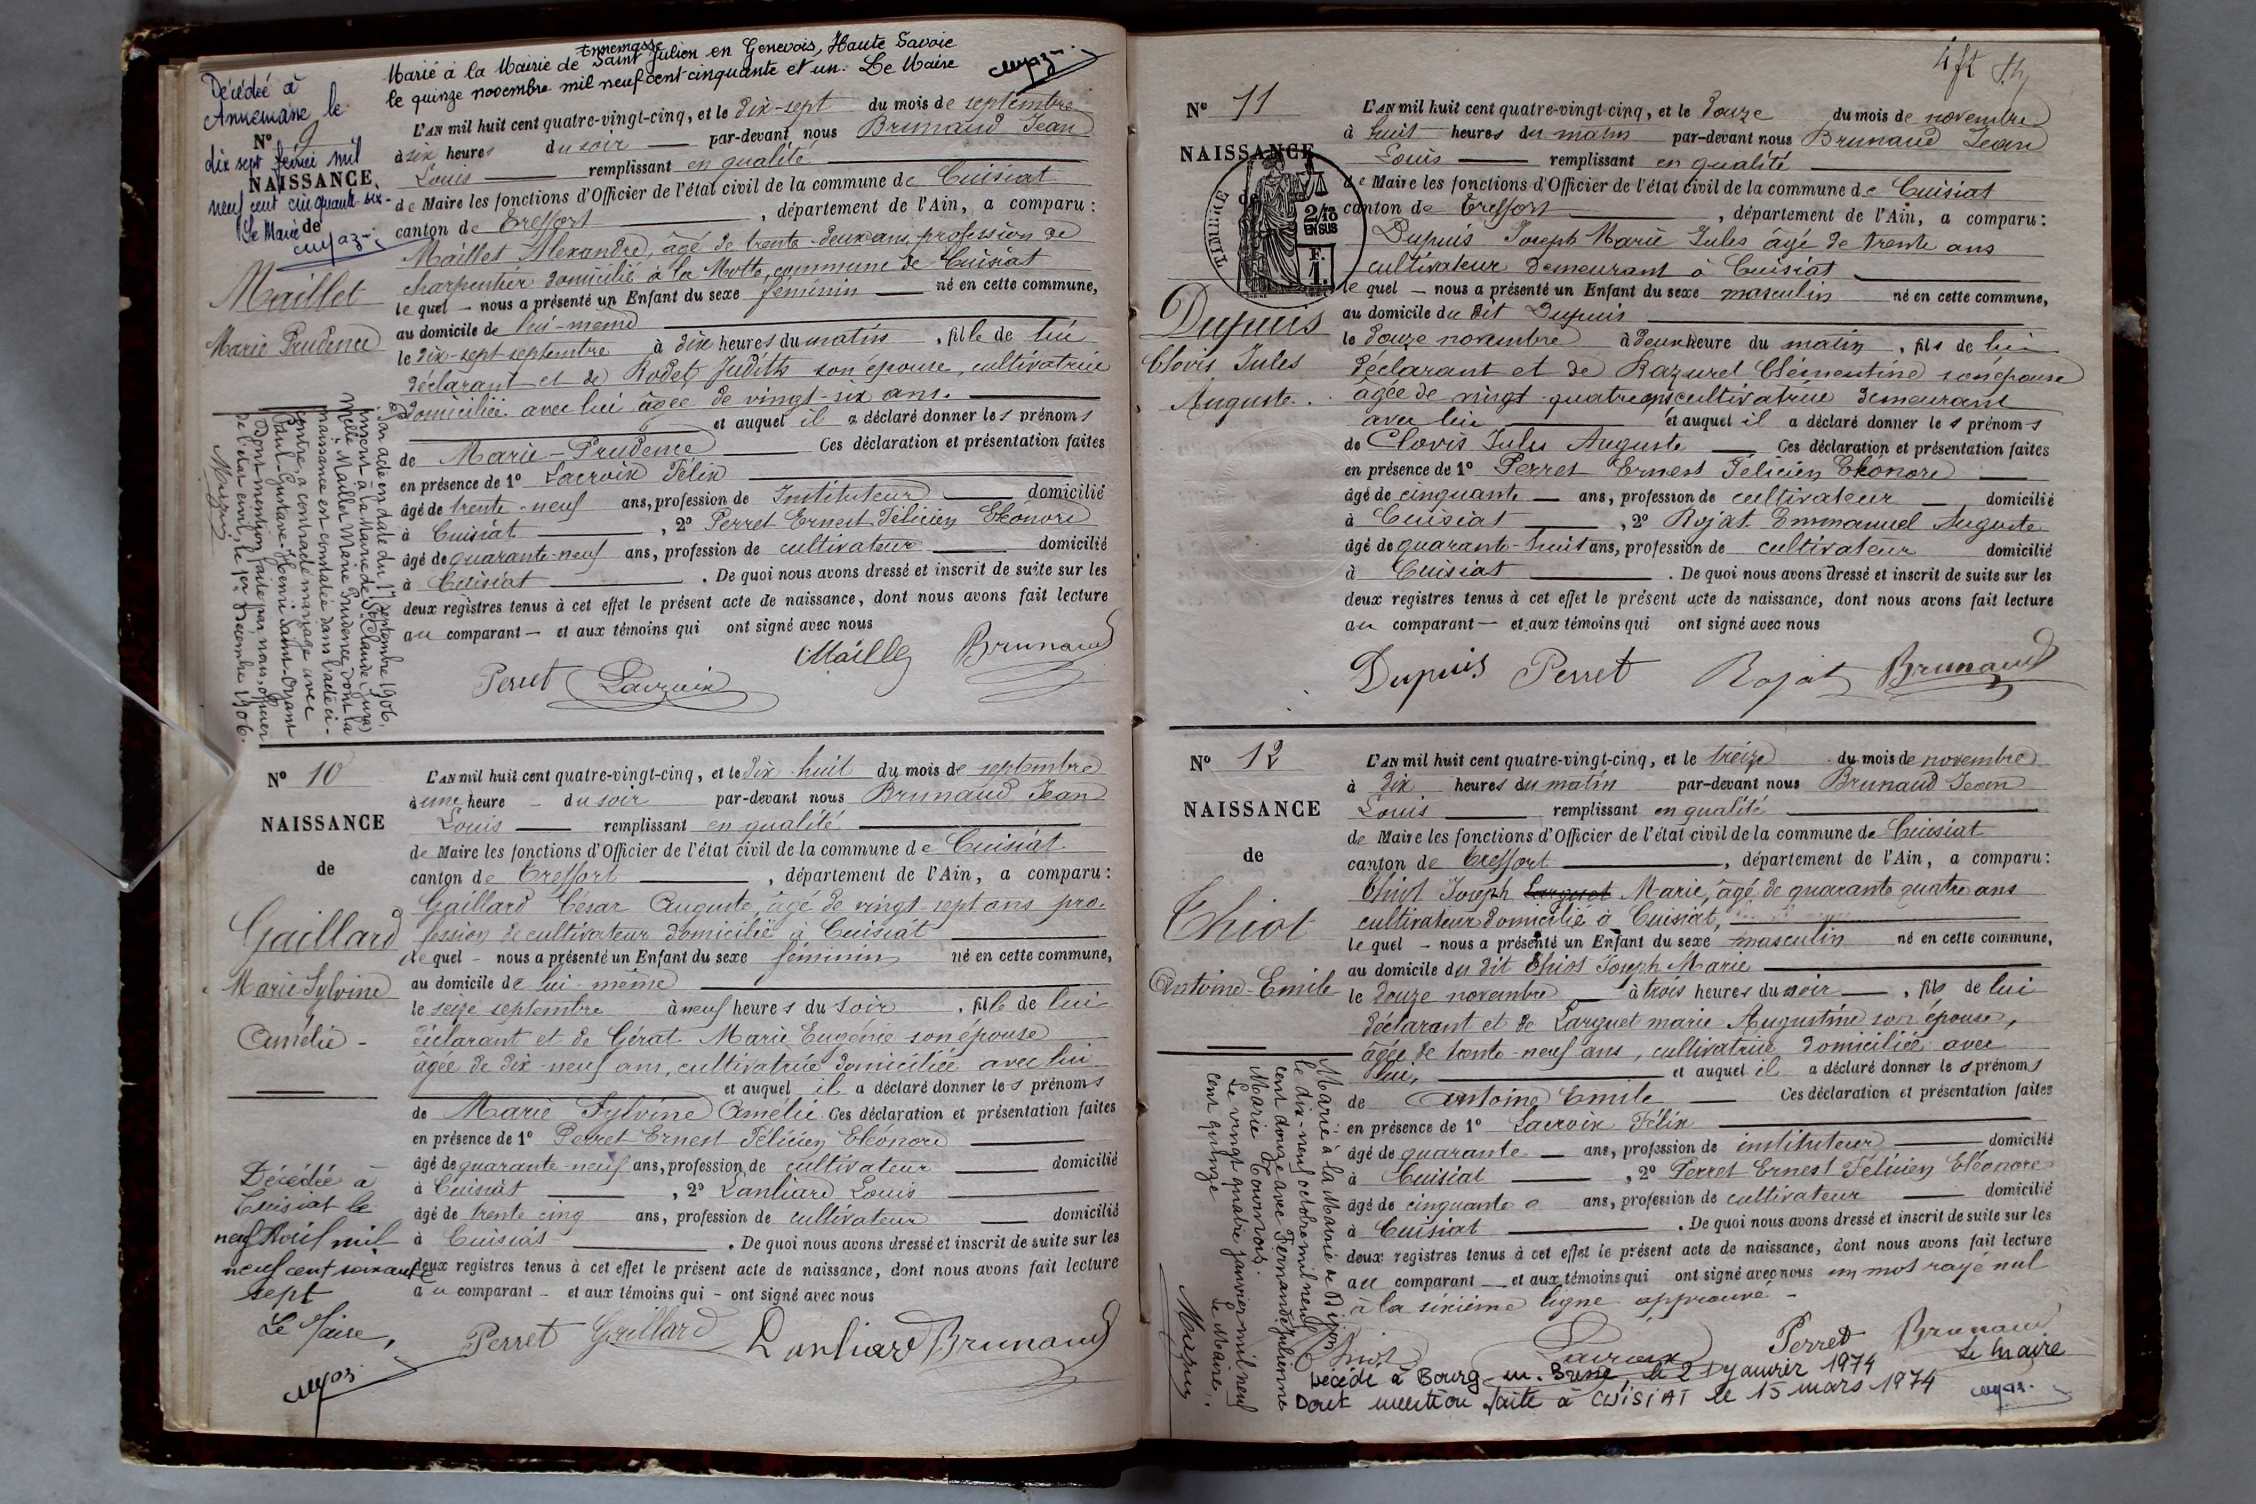 Annemasse
Marié à la Mairie de Saint Julien en Genevois, Haute Savoie
le quinze novembre mil neuf cent cinquante et un. Le Maire
Décédée à
Annemasse le
dix sept février mil
neuf cent cinquante-six-
Le Maire
N° 9
NAISSANCE
de
Maillet
Marie Prudence
L'AN mil huit cent quatre-vingt-cinq, et le dix-sept du mois de septembre
à six heures du soir par-devant nous Brunaud Jean
Louis remplissant en qualité
de Maire les fonctions d'Officier de l'état civil de la commune de Cuisiat
canton de Treffort, département de l'Ain, a comparu :
Maillet Alexandre, âgé de trente-deux ans, profession de
charpentier domicilié à la Motte, commune de Cuisiat
le quel nous a présenté un Enfant du sexe féminin né en cette commune,
au domicile de lui-même
le dix-sept septembre à dix heures du matin, fille de lui
déclarant et de Rodet Judith son épouse, cultivatrice
domiciliée avec lui âgée de vingt-six ans.
et auquel il a déclaré donner les prénoms
de Marie-Prudence Ces déclaration et présentation faites
en présence de 1° Lacroix Félix
âgé de trente-neuf ans, profession de Instituteur domicilié
à Cuisiat, 2° Perret Ernest Félicien Eléonore
âgé de quarante-neuf ans, profession de cultivateur domicilié
à Cuisiat. De quoi nous avons dressé et inscrit de suite sur les
deux registres tenus à cet effet le présent acte de naissance, dont nous avons fait lecture
au comparant et aux témoins qui ont signé avec nous
Maillet Brunaud
Perret Lacroix
Par acte en date du 17 septembre 1906,
inscrit à la Mairie de St Claude (Jura)
Melle Maillet Marie Prudence, dont la
naissance est constatée dans l'acte ci-
contre, a contracté mariage avec
Paul-Gustave-Henri Saint-Oyant
Dont mention faite par nous, officier
de l'état civil, le 1er Décembre 1906.
N° 10
NAISSANCE
de
Gaillard
Marie Sylvine
Amélie -
L'AN mil huit cent quatre-vingt-cinq, et le dix-huit du mois de septembre
à une heure du soir par-devant nous Brunaud Jean
Louis remplissant en qualité
de Maire les fonctions d'Officier de l'état civil de la commune de Cuisiat
canton de Treffort, département de l'Ain, a comparu :
Gaillard César Auguste, âgé de vingt-sept ans pro-
fession de cultivateur domicilié à Cuisiat
le quel - nous a présenté un Enfant du sexe féminin né en cette commune,
au domicile de lui-même
le seize septembre à neuf heures du soir, fille de lui
déclarant et de Gérat Marie Eugénie son épouse
âgée de dix-neuf ans, cultivatrice domiciliée avec lui
et auquel il a déclaré donner les prénoms
de Marie Sylvine Amélie Ces déclaration et présentation faites
en présence de 1° Perret Ernest Félicien Eléonore
âgé de quarante-neuf ans, profession de cultivateur domicilié
à Cuisiat, 2° Lanliard Louis
âgé de trente cinq ans, profession de cultivateur domicilié
à Cuisiat. De quoi nous avons dressé et inscrit de suite sur les
deux registres tenus à cet effet le présent acte de naissance, dont nous avons fait lecture
au comparant - et aux témoins qui - ont signé avec nous
Perret Gaillard Lanliard Brunaud
Décédée à
Cuisiat le
neuf Avril mil
neuf cent soixante
sept
Le Maire,
N° 11
NAISSANCE
de
TIMBRE
2/10 EN SUS
F. 1.
Dupuis
Clovis Jules
Auguste.
L'AN mil huit cent quatre-vingt-cinq, et le douze du mois de novembre
à huit heures du matin par-devant nous Brunaud Jean
Louis remplissant en qualité
de Maire les fonctions d'Officier de l'état civil de la commune de Cuisiat
canton de Treffort, département de l'Ain, a comparu :
Dupuis Joseph Marie Jules âgé de trente ans
cultivateur demeurant à Cuisiat
le quel - nous a présenté un Enfant du sexe masculin né en cette commune,
au domicile du dit Dupuis
le douze novembre à deux heure du matin, fils de lui
déclarant et de Razurel Clémentine son épouse
âgée de vingt-quatre ans cultivatrice demeurant
avec lui et auquel il a déclaré donner les prénoms
de Clovis Jules Auguste Ces déclaration et présentation faites
en présence de 1° Perret Ernest Félicien Eléonore
âgé de cinquante ans, profession de cultivateur domicilié
à Cuisiat, 2° Rojat Emmanuel Auguste
âgé de quarante-huit ans, profession de cultivateur domicilié
à Cuisiat. De quoi nous avons dressé et inscrit de suite sur les
deux registres tenus à cet effet le présent acte de naissance, dont nous avons fait lecture
au comparant - et aux témoins qui ont signé avec nous
Dupuis Perret Rojat Brunaud
N° 12
NAISSANCE
de
Thiot
Antoine-Emile
L'AN mil huit cent quatre-vingt-cinq, et le treize du mois de novembre
à dix heures du matin par-devant nous Brunaud Jean
Louis remplissant en qualité
de Maire les fonctions d'Officier de l'état civil de la commune de Cuisiat
canton de Treffort, département de l'Ain, a comparu :
Thiot Joseph Larguet Marie, âgé de quarante quatre ans
cultivateur domicilié à Cuisiat,
le quel - nous a présenté un Enfant du sexe masculin né en cette commune,
au domicile du dit Thiot Joseph Marie
le douze novembre à trois heures du soir, fils de lui
déclarant et de Larguet marie Augustine son épouse,
âgée de trente-neuf ans, cultivatrice domiciliée avec
lui, et auquel il a déclaré donner les prénoms
de Antoine Emile Ces déclaration et présentation faites
en présence de 1° Lacroix Félix
âgé de quarante ans, profession de instituteur domicilié
à Cuisiat, 2° Perret Ernest Félicien Eléonore
âgé de cinquante ans, profession de cultivateur domicilié
à Cuisiat. De quoi nous avons dressé et inscrit de suite sur les
deux registres tenus à cet effet le présent acte de naissance, dont nous avons fait lecture
au comparant et aux témoins qui ont signé avec nous un mot rayé nul
à la sixième ligne approuvé -
Thiot Lacroix Perret Brunaud
Marié à la Mairie de Dijon
le dix-neuf octobre mil neuf
cent douze avec Fernande Julienne
Marie Tournois.
Le vingt quatre janvier mil neuf
cent quinze
Le Maire,
Décédé à Bourg-en-Bresse, le 21 Janvier 1974
Dont mention faite à CUISIAT le 15 mars 1974
Le Maire